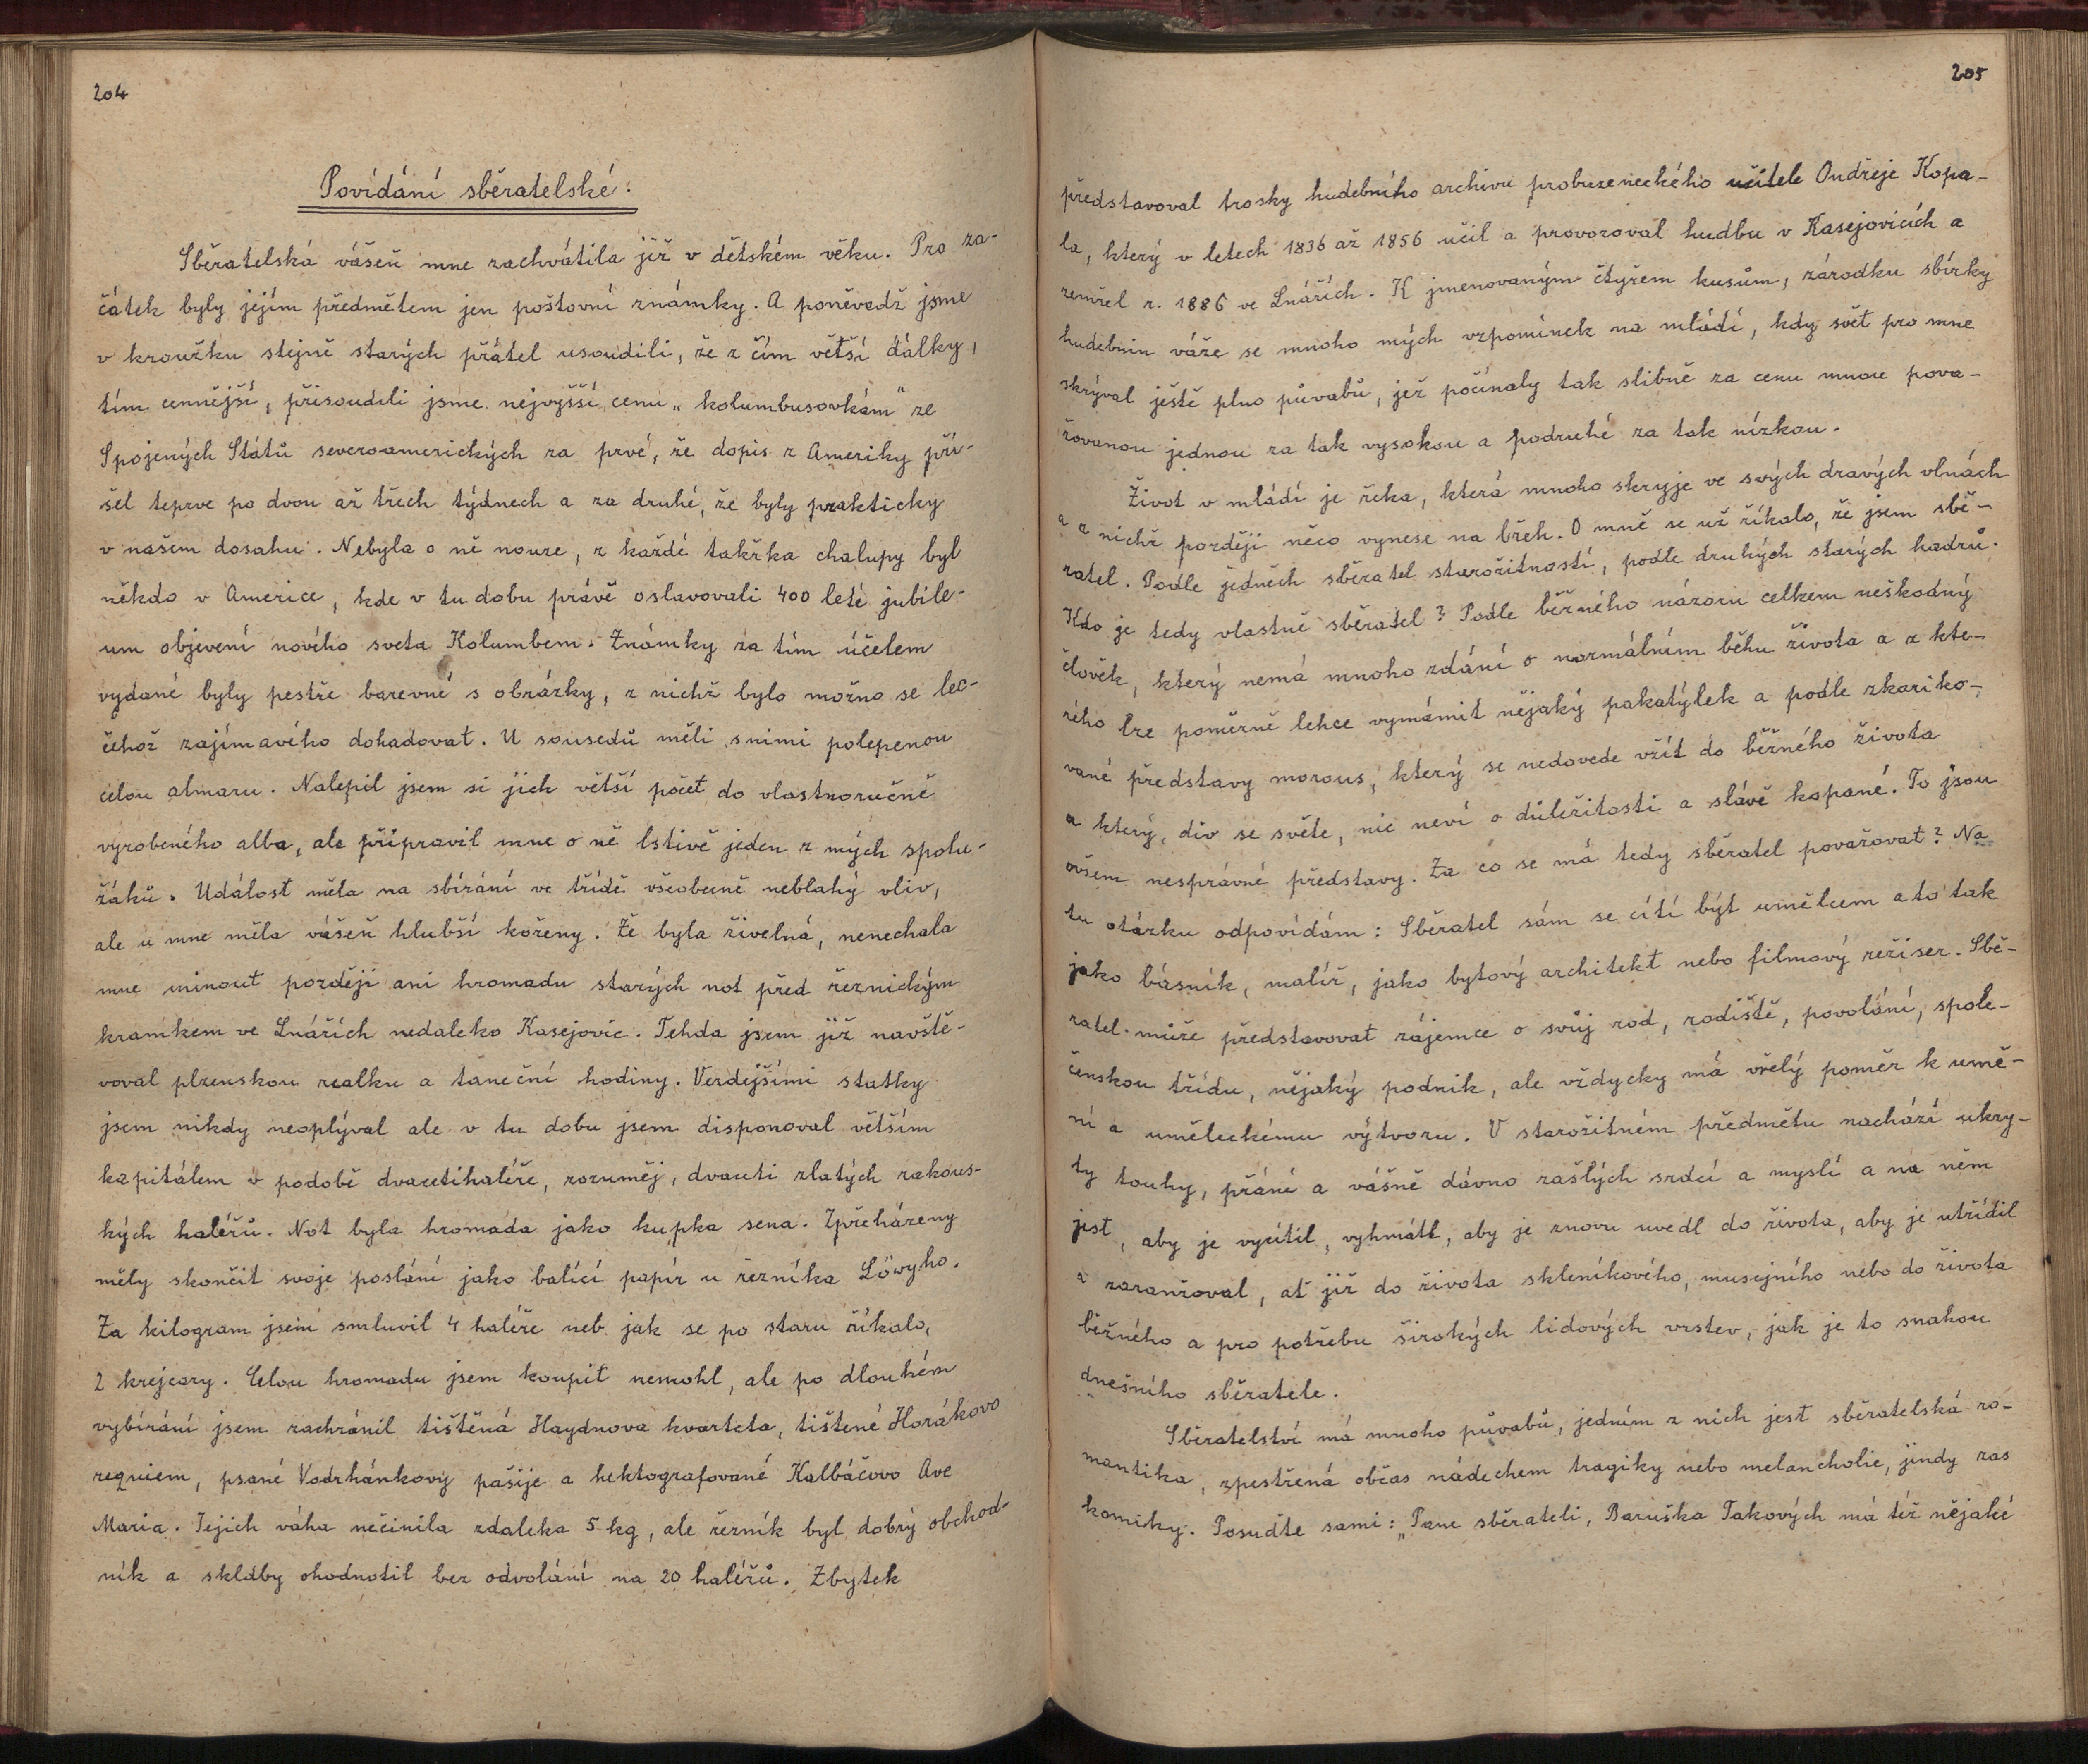 204
Povídání sběratelské.
Sběratelská vášeň mne zachvátila již v dětském věku. Pro za-
čátek byly jejím předmětem jen poštovní známky. A poněvadž jsme
v kroužku stejně starých přátel usoudili, že z čím větší dálky,
tím cennější, přisoudili jsme nejvyšší cenu „kolumbusovkám" ze
Spojených Států severoamerických za prvé, že dopis z Ameriky při-
šel teprve po dvou až třech týdnech a za druhé, že byly prakticky
v našem dosahu. Nebyla o ně nouze, z každé takřka chalupy byl
někdo v Americe, kde v tu dobu právě oslavovali 400 leté jubile-
um objevení nového sveta Kolumbem. Známky za tím účelem
vydané byly pestře barevné s obrázky, z nichž bylo možno se lec-
čehož zajímavého dohadovat. U sousedů měli snimi polepenou
celou almaru. Nalepil jsem si jich větší počet do vlastnoručně
vyrobeného alba, ale připravil mne o ně lstivě jeden z mých spolu-
žáků. Událost měla na sbírání ve třídě všeobecně neblahý vliv,
ale u mne měla vášeň hlubší kořeny. Že byla živelná, nenechala
mne minout později ani hromadu starých not před řeznickým
kramkem ve Lnářích nedaleko Kasejovic. Tehda jsem již navště-
voval plzenskou realku a taneční hodiny. Verdejšími statky
jsem nikdy neoplýval ale v tu dobu jsem disponoval větším
kapitálem v podobě dvacetihaléře, rozuměj, dvaceti zlatých rakous-
kých haléřů. Not byla hromada jako kupka sena. Zpřeházeny
měly skončit svoje poslání jako balící papír u řezníka Löwyho.
Za kilogram jsem smluvil 4 haléře neb jak se po staru říkalo,
2 krejcary. Celou hromadu jsem koupit nemohl, ale po dlouhém
vybírání jsem zachránil tištěná Haydnova kvarteta, tištené Horákovo
requiem, psané Vodrhánkovy pašije a hektografované Kalbáčovo Ave
Maria. Jejich váha nečinila zdaleka 5 kg, ale řezník byl dobrý obchod-
ník a skladby ohodnotil bez odvolání na 20 haléřů. Zbytek
205
představoval trosky hudebního archivu probuzeneckého učitele Ondřeje Kopa-
la, který v letech 1836 až 1856 učil a provozoval hudbu v Kasejovicích a
zemřel r. 1886 ve Lnářích. K jmenovaným čtyřem kusům, zárodku sbírky
hudebnin váže se mnoho mých vzpomínek na mládí, kdy svět pro mne
skrýval ještě plno půvabů, jež počínaly tak slibně za cenu mnou pova-
žovanou jednou za tak vysokou a podruhé za tak nízkou.
Život v mládí je řeka, která mnoho skryje ve svých dravých vlnách
a z nichž později něco vynese na břeh. O mně se už říkalo, že jsem sbě-
ratel. Podle jedněch sběratel starožitností, podle druhých starých hadrů.
Kdo je tedy vlastně sběratel? Podle běžného názoru celkem neškodný
člověk, který nemá mnoho zdání o normálním běhu života a z kte-
rého lze poměrně lehce vymámit nějaký pakatýlek a podle zkariko-
vané představy morous, který se nedovede vžít do běžného života
a který, div se světe, nic neví o důležitosti a slávě kopané. To jsou
ovšem nesprávné představy. Za co se má tedy sběratel považovat? Na
tu otázku odpovídám: Sběratel sám se cítí být umělcem a to tak
jako básník, malíř, jako bytový architekt nebo filmový režiser. Sbě-
ratel může představovat zájemce o svůj rod, rodiště, povolání, spole-
čenskou třídu, nějaký podnik, ale vždycky má vřelý poměr k umě-
ní a uměleckému výtvoru. V starožitném předmětu nachází ukry-
ty touhy, přání a vášně dávno zašlých srdcí a myslí a na něm
jest, aby je vycítil, vyhmátl, aby je znovu uvedl do života, aby je utřídil
a zaranžoval, ať již do života skleníkového, musejního nebo do života
běžného a pro potřebu širokých lidových vrstev, jak je to snahou
dnešního sběratele.
Sběratelství má mnoho půvabů, jedním z nich jest sběratelská ro-
mantika, zpestřená občas nádechem tragiky nebo melancholie, jindy zas
komiky. Posuďte sami: „Pane sběrateli, Baruška Takových má též nějaké